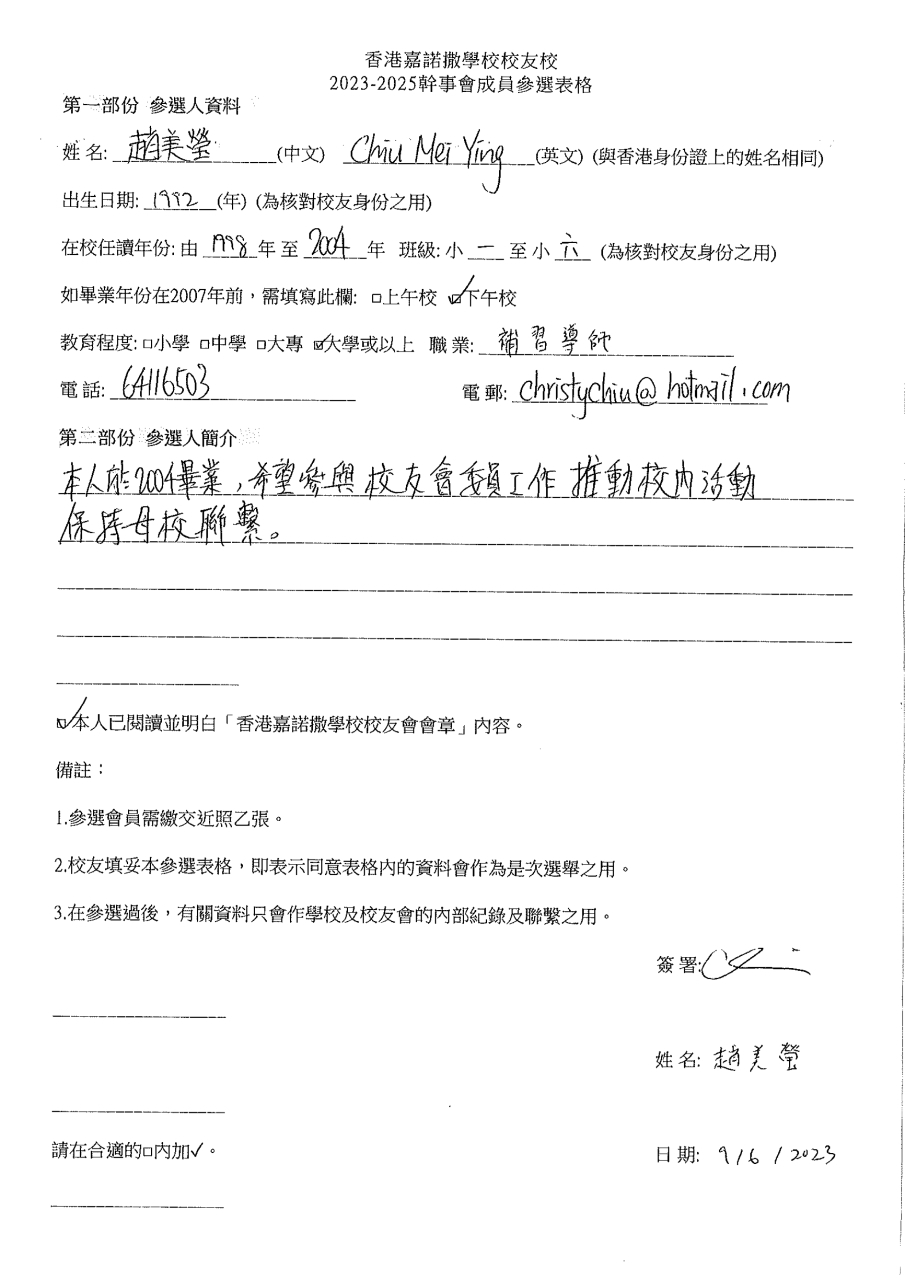 香港嘉諾撒學校校友校
2023-2025幹事會成員參選表格
第一部份 參選人資料
姓 名: 趙美瑩 (中文) Chiu Mei Ying (英文) (與香港身份證上的姓名相同)
出生日期: 1992 (年) (為核對校友身份之用)
在校任讀年份: 由 1998 年 至 2004 年 班級: 小 一 至 小 六 (為核對校友身份之用)
如畢業年份在2007年前，需填寫此欄: □上午校 ☑下午校
教育程度: □小學 □中學 □大專 ☑大學或以上 職 業: 補習導師
電 話: 64116503 電 郵: christychiu@hotmail.com
第二部份 參選人簡介
本人於2004畢業，希望參與校友會委員工作 推動校內活動
保持母校聯繫。
☑本人已閱讀並明白「香港嘉諾撒學校校友會會章」內容。
備註：
1.參選會員需繳交近照乙張。
2.校友填妥本參選表格，即表示同意表格內的資料會作為是次選舉之用。
3.在參選過後，有關資料只會作學校及校友會的內部紀錄及聯繫之用。
簽 署:
姓 名: 趙美瑩
請在合適的□內加✓。 日 期: 9/6/2023